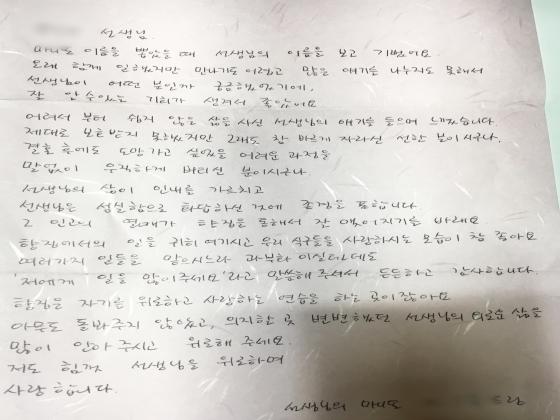 선생님.
마니또 이름을 뽑았을 때 선생님의 이름을 보고 기뻤어요.
오래 함께 일했지만 만나기도 어렵고 많은 얘기를 나누지도 못해서
선생님이 어떤 분인가 궁금해했었기에,
잘 알 수 있는 기회가 생겨서 좋았어요
어려서 부터 쉽지 않은 삶을 사신 선생님의 얘기를 들으며 느꼈습니다
제대로 보호받지 못하셨지만 그래도 참 바르게 자라신 선한 분이시구나.
결혼 후에도 도망가고 싶었을 어려운 과정을
말없이 우직하게 버티신 분이시구나.
선생님의 삶이 인내를 가르치고
선생님은 성실함으로 화답하신 것에 존경을 표합니다
그 인고의 열매가 탄정을 통해서 잘 맺어지기를 바래요.
탄정에서의 일을 귀히 여기시고 우리 식구들을 사랑하시는 모습이 참 좋아요
여러가지 일들을 맡으시느라 과부하 이실터인데도
'저에게 일을 많이주세요'라고 말씀해 주셔서 든든하고 감사합니다.
탄정은 자기를 위로하고 사랑하는 연습을 하는 곳이잖아요
아무도 돌봐주지 않았고, 의지할 곳 변변했던 선생님의 외로운 삶을
많이 안아 주시고 위로해 주세요.
저도 힘껏 선생님을 위로하며
사랑합니다.
선생님의 마니또 드림